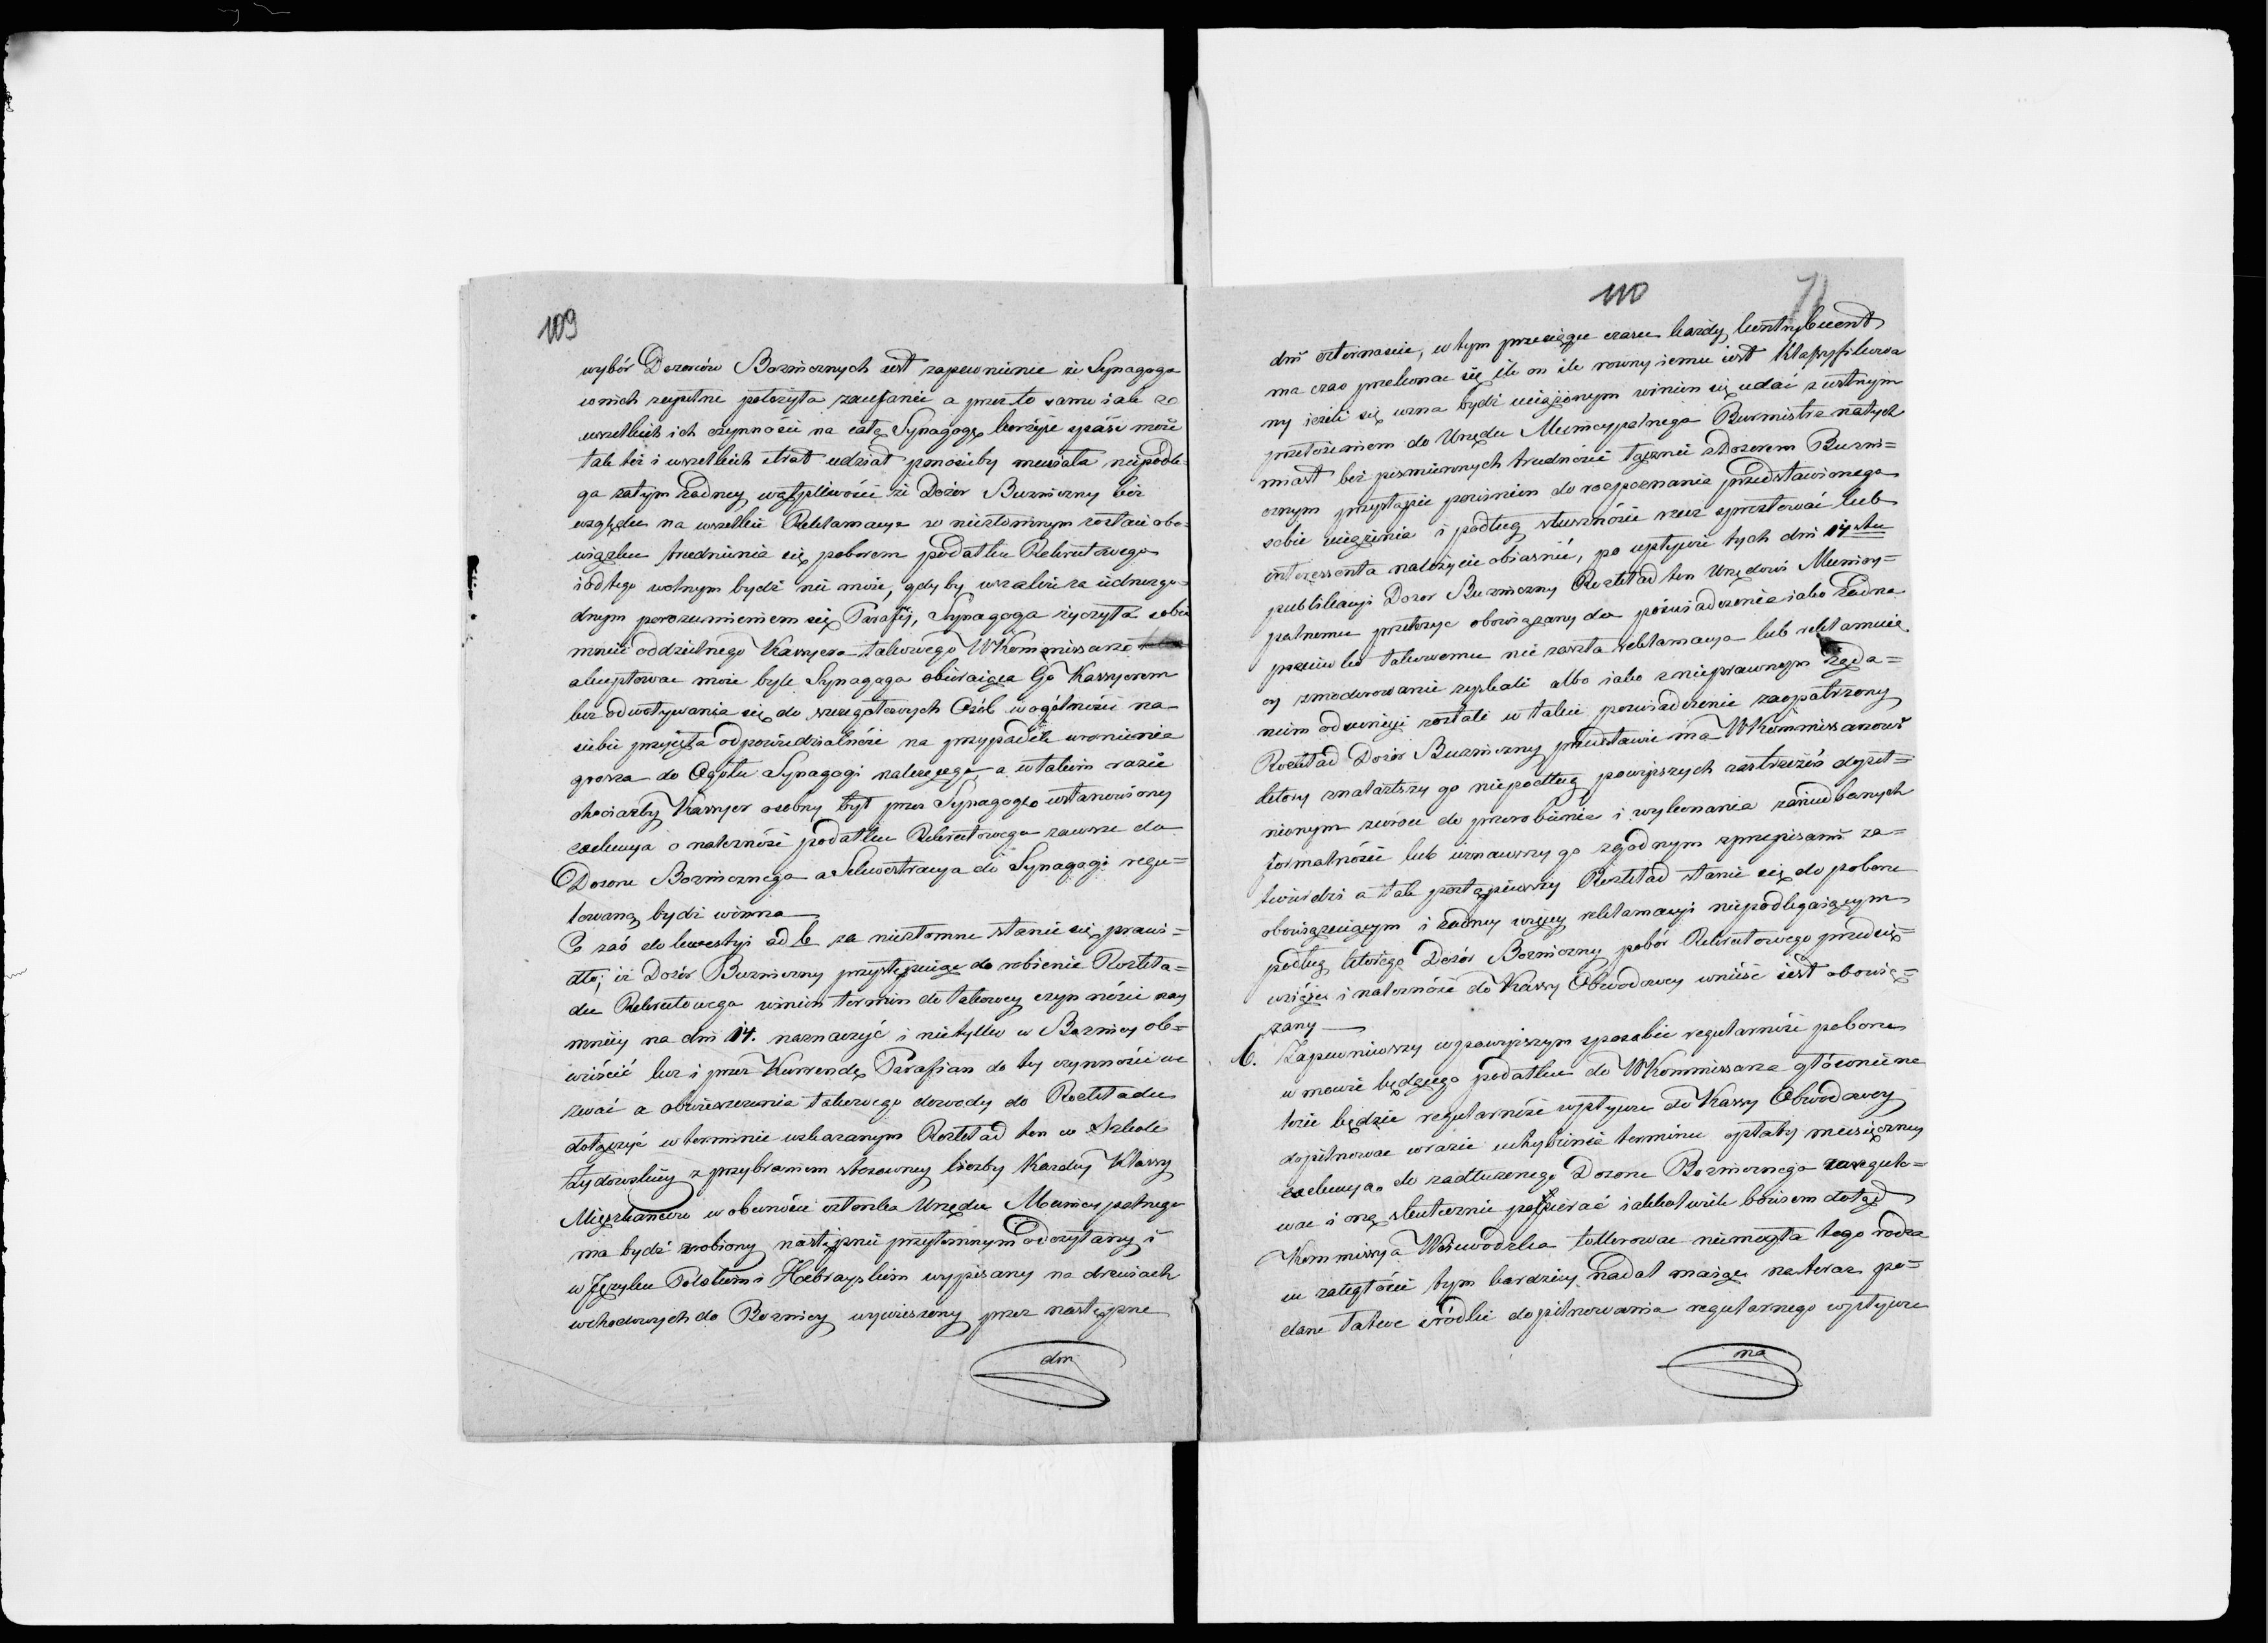 109
wybór Dozorów Bozniczných iest zapewnienie że Synagoga
w nich zupełne położyła zaufanie a przeto samo iak ze
wszelkich ich czynności na całą Synagogę korzyść spaść może
tak też i wszelkich strat udział ponosić by musiała niepodle-
ga zatym żadney wątpliwości że Dozór Buzniczny bez
względu na wszelkie Reklamacye w niezłomnym zostaie obo-
wiązku trudnienia się poborem podatku Rekrutowego
i od tego wolnym bydź nie może, gdyby wszakże za iednozgo-
dnym porozumieniem się Parafij, Synagoga życzyła sobie
mieć oddzielnego Kassyera takowego WKommissarz
akceptować może byle Synagoga obieraiąca Go Kassyerem
bez odwoływania się do szczegółowych Osób w ogólności na
siebie przyięła odpowiedzialność na przypadek uronienia
grosza do Ogółu Synagogi należącego, a w takim razie
chociażby Kassyer osobny był przez Synagogę ustanowiony
exekucya o należność podatku Rekrutowego zawsze do
Dozoru Bozniczného a Sekwestracya do Synagogi regu=
lowaną bydź winna
Co zaś do kwestyi ad b za niezłomne stanie się prawi=
dło; iż Dozór Buzniczny przystępuiąc do robienia Rozkła=
du Rekrutowego winien termin do takowey czynności nay
mniéy na dni 14. naznaczyć i nietylko w Boznicy ob=
wieścić lecz i przez Kurrendę Parafian do tey czynności we
zwać a obwieszczenia takowego dowody do Rozkładu
dołączyć w terminie wskazanym Rozkład ten w Szkole
Żydowskiéy z przybraniem stosowney liczby Każdey Klassy
Mieszkańców w obecności członka Urzędu Municypalnego
ma bydź zrobiony następnie przytomnym odczytany i
w Języku Polskim i Hebrayskim wypisany na drzwiach
wchodowych do Boznicy wywieszony przez następne
dni
110
71
dni czternaście, w tym przeciągu czasu każdy kontrybuent
ma czas przekonać się ile on ile rowny iemu iest klassyfikowa
ny ieżeli się uzna bydź uciążonym winien się udać z ustnym
przełożeniem do Urzędu Municypalnego Burmistrz natych
miast bez pismiennych trudności łącznie z Dozorem Buzni=
cznym przystąpić powinien do rozpoznania przedstawionego
sobie uciążenia i podług słuszności rzecz sprostować lub
interessenta należycie obiaśnić, po upływie tych dni 14stu
publikacyi Dozor Buzniczny Rozkład ten Urzędowi Municy=
palnemu przełożyć obowiązany do poświadczenia iako żadna
przeciwko takowemu nie zaszła reklamacya lub reklamuią
cy zmoderowanie zyskali albo iako z nieprawnym żąda=
niem odsunięci zostali w takie poswiadczenie zaopatrzony
Rozkład Dozór Buzniczny przedstawić ma WKommissarzowi
ktory znalazłszy go niepodług powyższych zastrzeżeń dopeł=
nionym zwróci do przerobienia i wykonania zaniedbanych
formalności lub uznawszy go zgodnym z przepisami za=
twierdzi a tak postąpiwszy Rozkład stanie się do poboru
obowiązuiącym i żadney więcey reklamacyi niepodlegaiącym
podług którego Dozór Bozniczny pobór Rekrutowego przedsię=
wziąść i należność do Kassy Obwodowey wnieść iest obowią=
zany
6. Zapewniwszy w powyższym sposobie regularność poboru
w mowie będącego podatku do WKommissarza głównie na
leżeć będzie regularność wpływu do Kassy Obwodowey
dopilnować w razie uchybienia terminu opłaty miesięczney
exekucya do zadłużonego Dozoru Bozniczného zaregulo=
wać i onę skutecznie popierać iakkolwiek bowiem dotąd
Kommissya Woiewodzka tollerować niemogła tego rodza
iu zaległości tym bardziey nadal maiąc na teraz po=
dane łatwe srodki dopilnowania regularnego wpływu
na